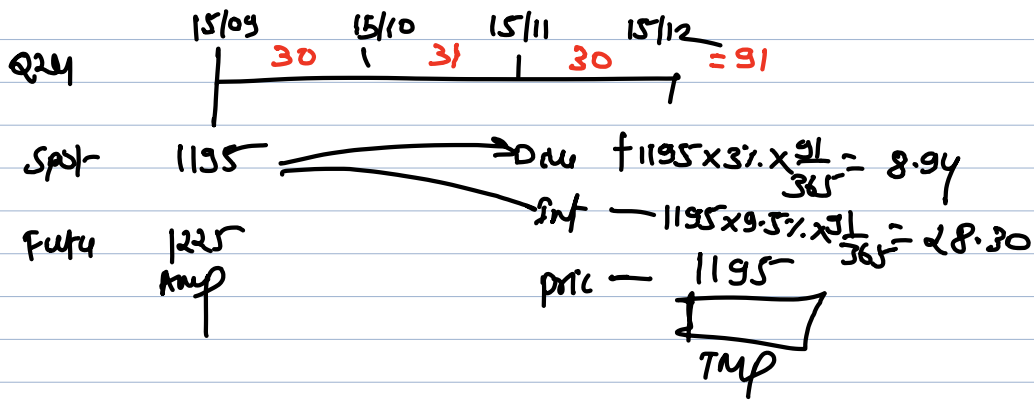 15/09 15/10 15/11 15/12
Q24 30 31 30 = 91
Spot 1195 Div +1195×3%×91/365 = 8.94
Int — 1195×9.5%×91/365 = 28.30
Future 1225
AMP Pric — 1195
TMP